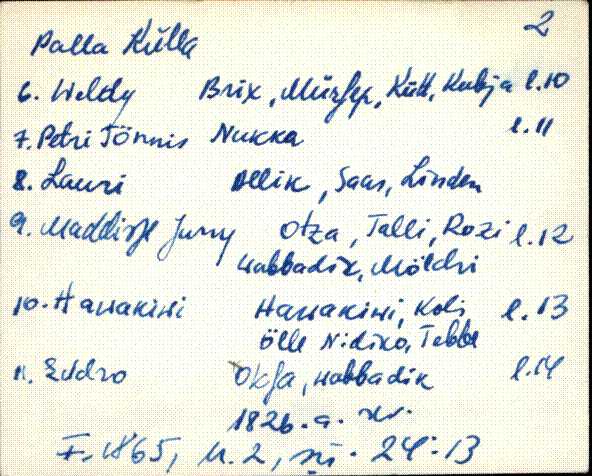 2
Palla Külla
6. Weldy Brix, Mürsep, Kütt, Kubja l. 10
7. Petri Tönnis Nukka l. 11
8. Lauri Ollik, Saas, Linden
9. Maddisse Jurry Otza, Talli, Rozi l. 12
Wabbadik, Möldri
10. Hawakiwi Hawakiwi, Kolj l. 13
ölle Nidiko, Tebbe
11. Otsa, Wabbadik l. 14
1826. a.
F. 1865, n. 2, sü. 24:13